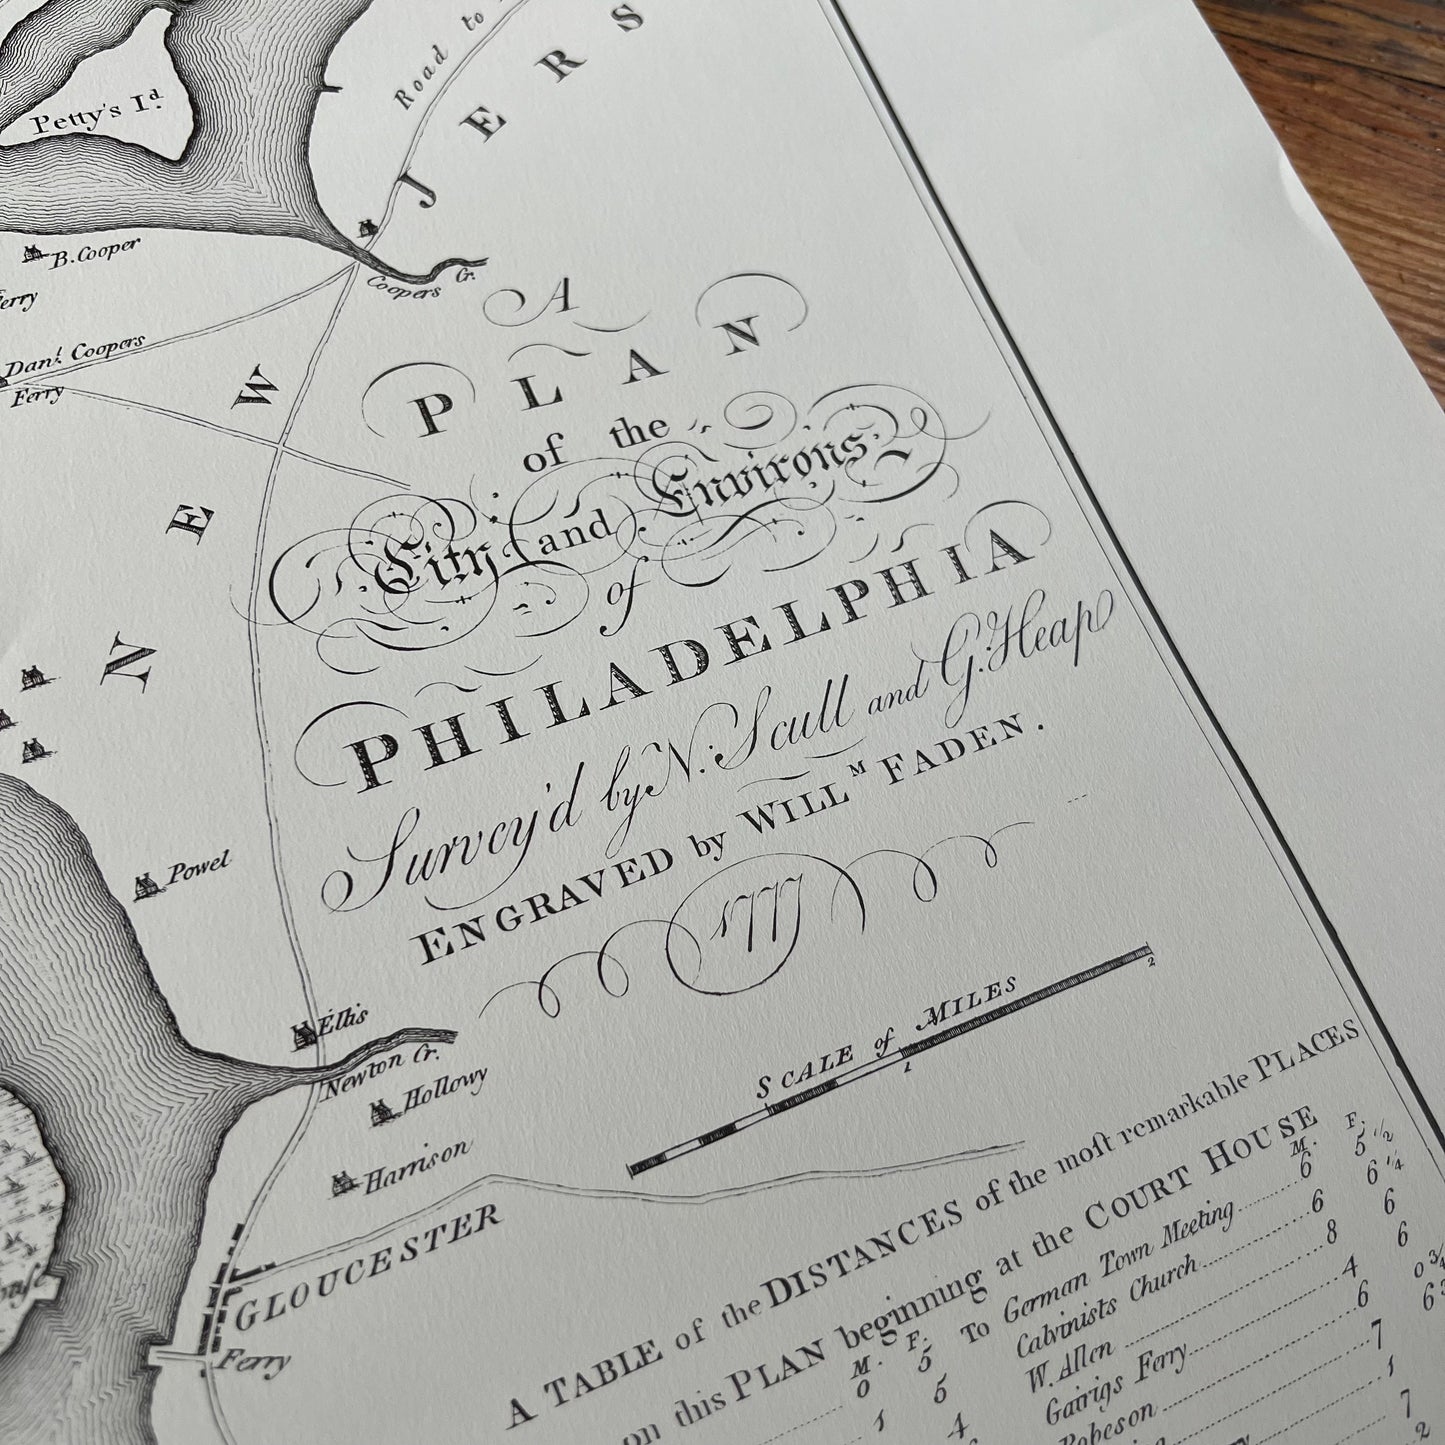 Road to
JERS
Petty's Iᵈ.
B. Cooper
Ferry
Coopers Cr.
Danˡ. Coopers
Ferry
NEW
A
PLAN
of the
City and Environs
of
PHILADELPHIA
Survey'd by N. Scull and G. Heap
ENGRAVED by WILLᴹ FADEN.
1777
Powel
Ellis
Newton Cr.
Hollowy
Harrison
GLOUCESTER
Ferry
SCALE of MILES
1 2
A TABLE of the DISTANCES of the moſt remarkable PLACES
on this PLAN beginning at the COURT HOUSE
M. F.
M. F.
0 5
To German Town Meeting 6 5 1/2
1 5
Calvinists Church 6 6 1/4
4
W. Allen 8 6
Gairigs Ferry 4 6
Robeson 6 0 3/4
7 6
1
7
2